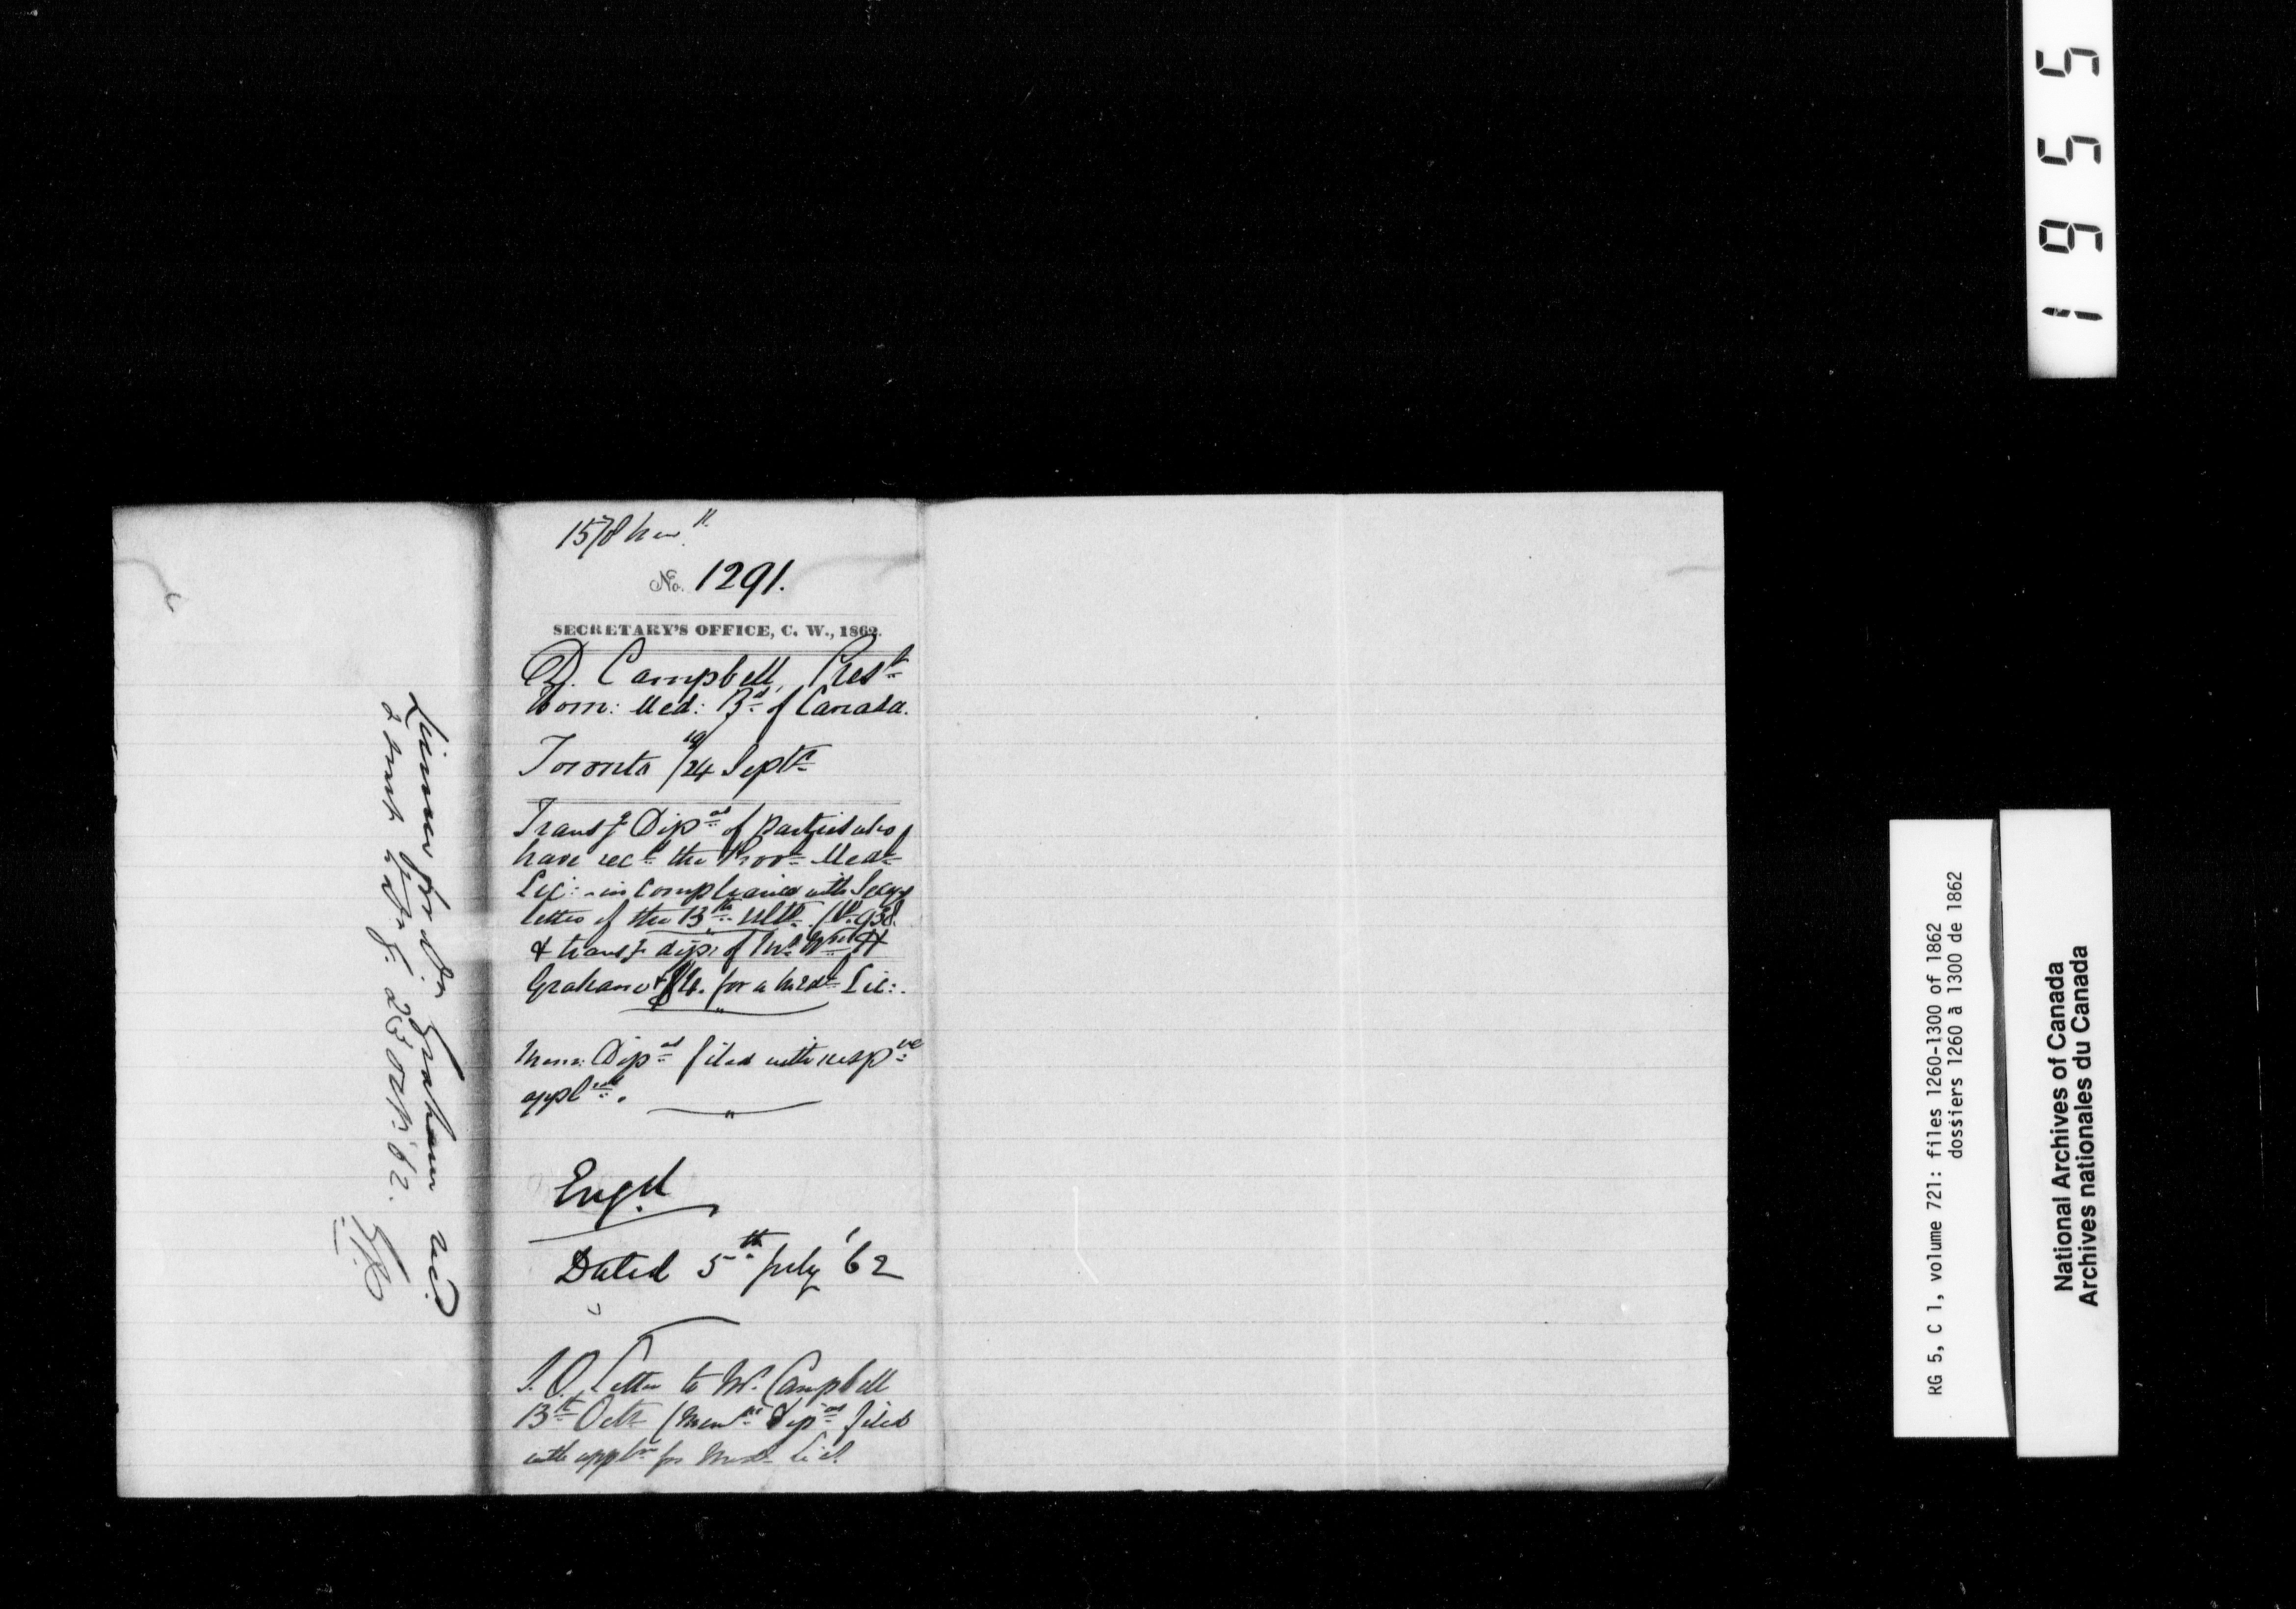 1578
No. 1291.
SECRETARY'S OFFICE, C. W., 1862.
D. Campbell, Prest
Hom: Med: Bd of Canada.
Toronto 19/24 Septr
Transg Dipas of parties who
have recd the Provl Medl
Lic: - in compliance with Secys
letter of the 13th ulto. (No 938.
& transg dipa of Mr Wm H
Graham for a Medl Lic:.
Mem: Dipas filed with respve
applons.
Engd
Dated 5th July '62
P.O. Letter to Mr. Campbell
13th Octr (Ment dipas filed
with applon for Medl Lic.
License for Dr. Graham
23 Octr. '62.
19551
RG 5, C 1, volume 721: files 1260-1300 of 1862
dossiers 1260 à 1300 de 1862
National Archives of Canada
Archives nationales du Canada